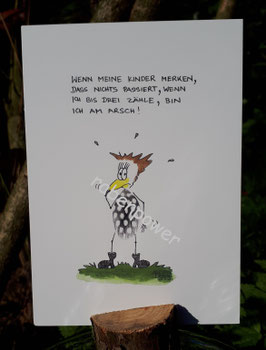 WENN MEINE KINDER MERKEN,
DASS NICHTS PASSIERT, WENN
ICH BIS DREI ZÄHLE, BIN
ICH AM ARSCH!